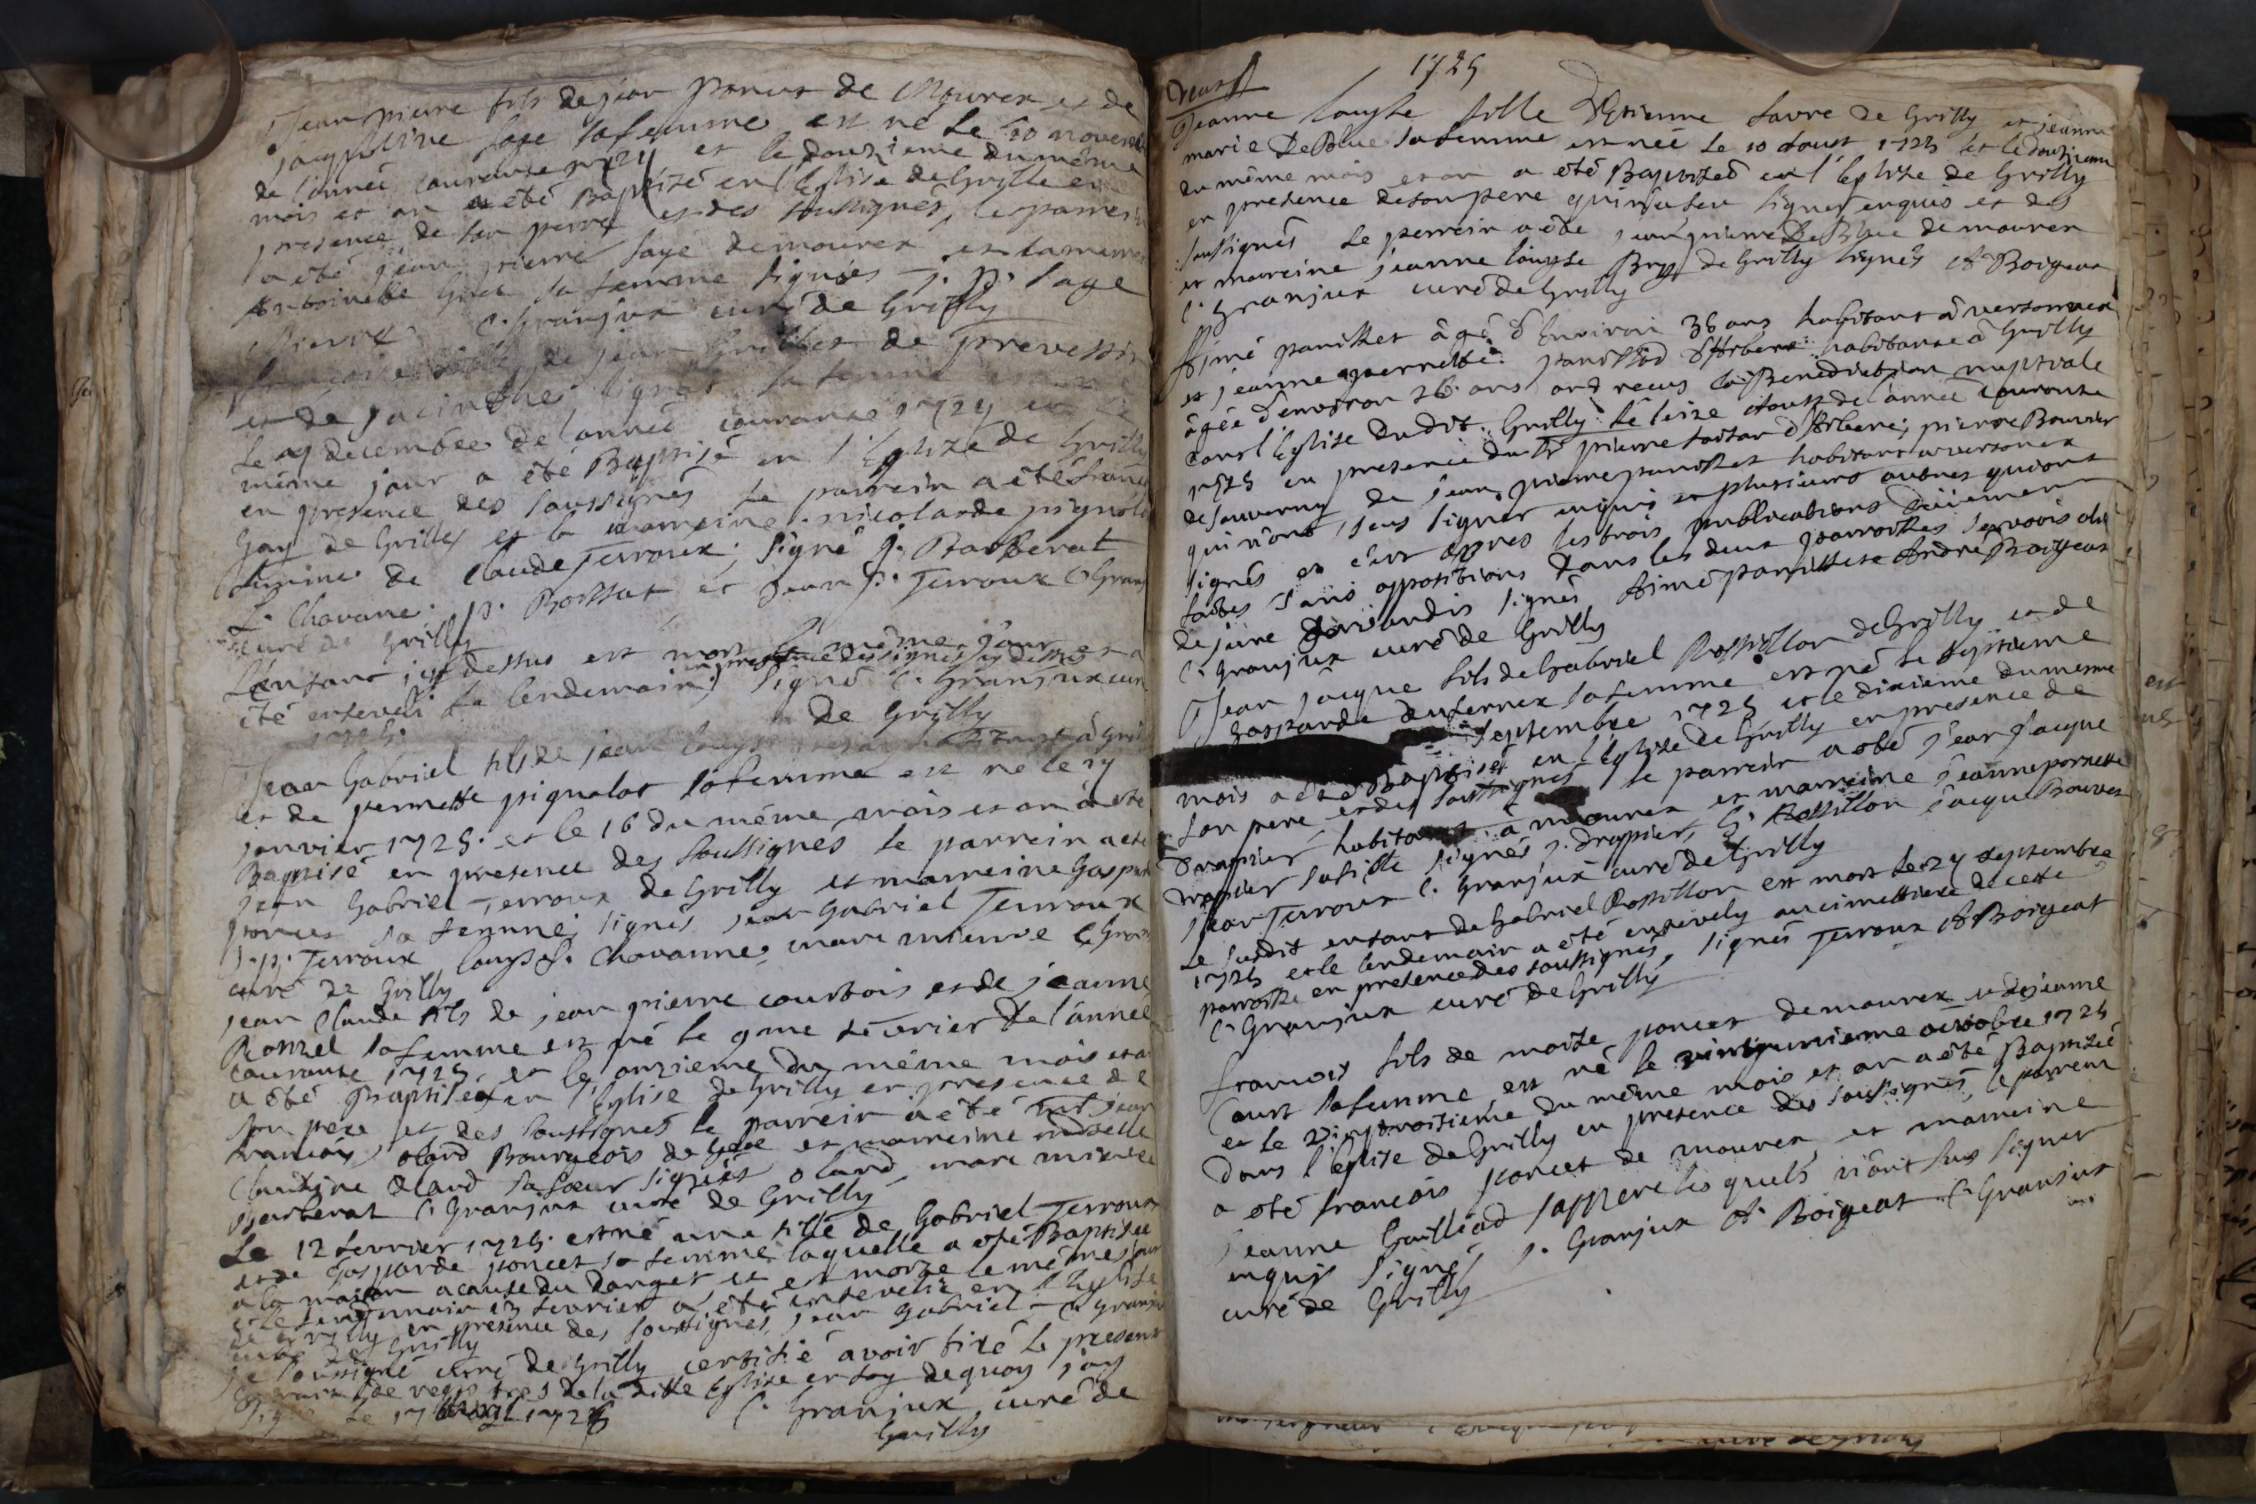 Jean pierre fils de jean Poncet de Mourex et de
jaqueline sage sa femme est né le 10 novemb
de l'année courante 1724 et le douzieme du même
mois et an a été Baptizé en l'Eglise de Grilly en
presence de son perre et des soussignés, le parrein
a été jean pierre sage de mourex et la marreine
Antoinette sa femme signés J. p. sage
C. Granjux curé de Grilly
de jean Grillet de prevessin
et de jacinthe sa femme
Le decembre de l'année courante 1724 et le
même jour a été Baptisé en l'Eglize de Grilly
en presence des soussignés le parrein a été françois
Gay de Grilly et la marreine nicolarde pignolat
femme de Claude Terroux, signé J. Barberat
L. Chavane. p. Rossat et Jean J. Terroux C Granj
curé de Grilly
L'enfant cy dessus est mort le même jour et a
été enseveli le lendemain en presence des signés cy dessus signé C. Granjux curé
1725. de Grilly
Jean Gabriel fils de jean louys habitant à Grilly
et de pernette pignolat sa femme est né le 14
janvier 1725. et le 16 du même mois et an a été
Baptisé en presence des soussignés le parrein a été
jean Gabriel Terroux de Grilly et marreine Gasparde
poncet sa femme, signés jean Gabriel Terroux
J. p. Terroux louys f. Chavanne, marc mierve C Granj
curé de Grilly
jean Claude fils de jean pierre courtois et de jeanne
Rosset sa femme est né le 9me février de l'année
courante 1725 et le onzieme du même mois et an
a été Baptisé en l'Eglise de Grilly en presence de
son pere et des soussignés le parrein a été Sr. jean
francois oland Bourgeois de Gex et marreine mdselle
Claudine oland sa sœur signés oland, marc mierve
Barberat C Granjux curé de Grilly
Le 12 fevrier 1725. est né une fille de Gabriel Terroux
et de Gasparde poncet sa femme laquelle a été Baptisée
a la maison a cause du danger et est morte le même jour
et le lendemain 13 fevrier a été ensevelie en l'Eglise
de Grilly en presence des soussignés, jean Gabriel C Granjux
curé de Grilly
je soussigné curé de Grilly certifié avoir tiré le present
Extrait de registres de la ditte Eglise en foy de quoy j'ay
signé le 17 avril 1725 C. Granjux curé de
Grilly
1725
neuf
Jeanne louyse fille d'Etienne favre de Grilly et jeanne
marie De Blue sa femme est née le 10 d'aoust 1725 et le douzieme
du même mois et an a été Baptisée en l'Eglize de Grilly
en presence de son pere qui n'a seu signer enquis et des
soussignés le perrein a été jean pierre De Blue de mourex
et marreine jeanne louyse de Grilly signés A Boigeat
C. Granjux curé de Grilly
Aimé panisset âgé d'Environ 36 ans habitant à versonnex
et jeanne pernette panissod d'Arbere habitante à Grilly
âgée d'environ 26 ans ont reçus la Benediction nuptiale
dans l'Eglise dudit Grilly le seize d'aoust de l'année courante
1725 en presence du Sr pierre d'Arbere, pierre Bouvier
de sauverny de jean pierre panisset habitant a versonnex
qui n'ont seus signer enquis et plusieurs autres qui ont
signés et c'est appres les trois publications deüement
faites sans oppositions dans les deux parroisses servatis als
de jure servandis signés Aimé panisset André Boigeat
C. Granjux curé de Grilly
Jean jaque fils de Gabriel Rossillon de Grilly et de
Gasparde dufernex sa femme est né le septieme
septembre 1725 et le dixieme du mesme
mois a été Baptisé en l'Eglise de Grilly en presence de
son pere et des soussignés le parrein a été Jean Jaque
Drappier habitant à mourex et marreine Jeanne pernette
Drappier sa fille signés J. Drappier, G. Rossillon Jaque Bouvet
Jean Terroux C. Granjux curé de Grilly
Le susdit enfant de Gabriel Rossillon est mort le 24 septembre
1725 et le lendemain a été ensevely au cimettiere de cette
parroisse en presence des soussignés, signés Terroux A Boigeat
C. Granjux curé de Grilly
francois fils de moïse poncet de mourex et de jeanne
Court sa femme est né le vingtunieme octobre 1725
et le vingtroisieme du même mois et an a été Baptisé
dans l'Eglise de Grilly en presence des soussignés, le parrein
a été francois poncet de mourex et marreine
Jeanne Gailliod lesquels n'ont sus signer
enquis signés J. Granjux A. Boigeat C. Granjux
curé de Grilly